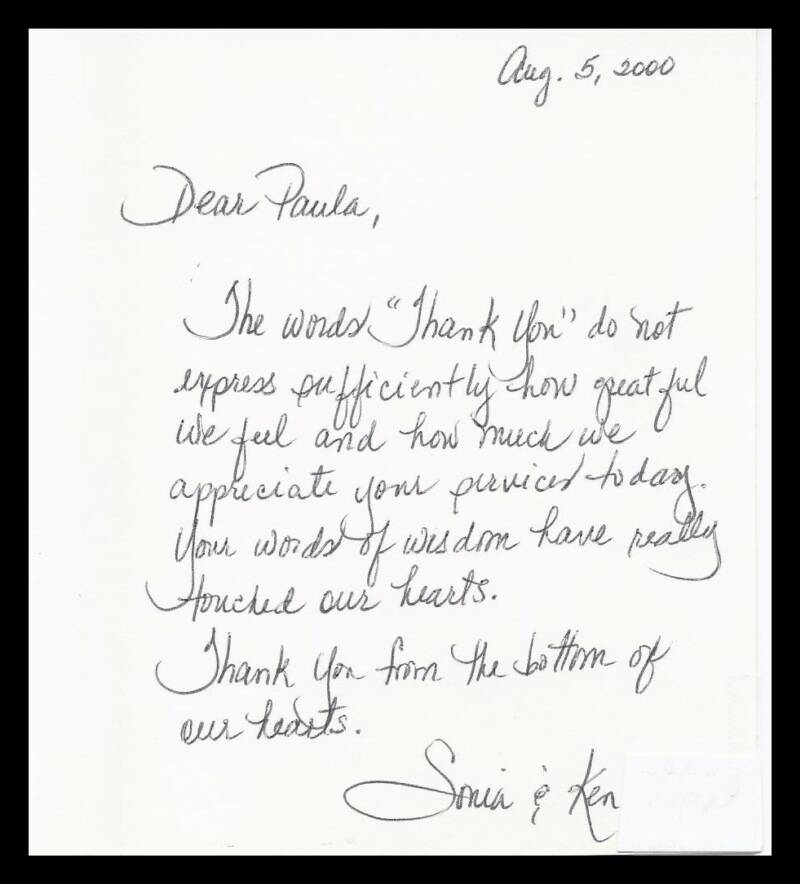 Aug. 5, 2000
Dear Paula,
The words "Thank You" do not
express sufficiently how greatful
we feel and how much we
appreciate your services today.
Your words of wisdom have really
touched our hearts.
Thank You from the bottom of
our hearts.
Sonia & Ken